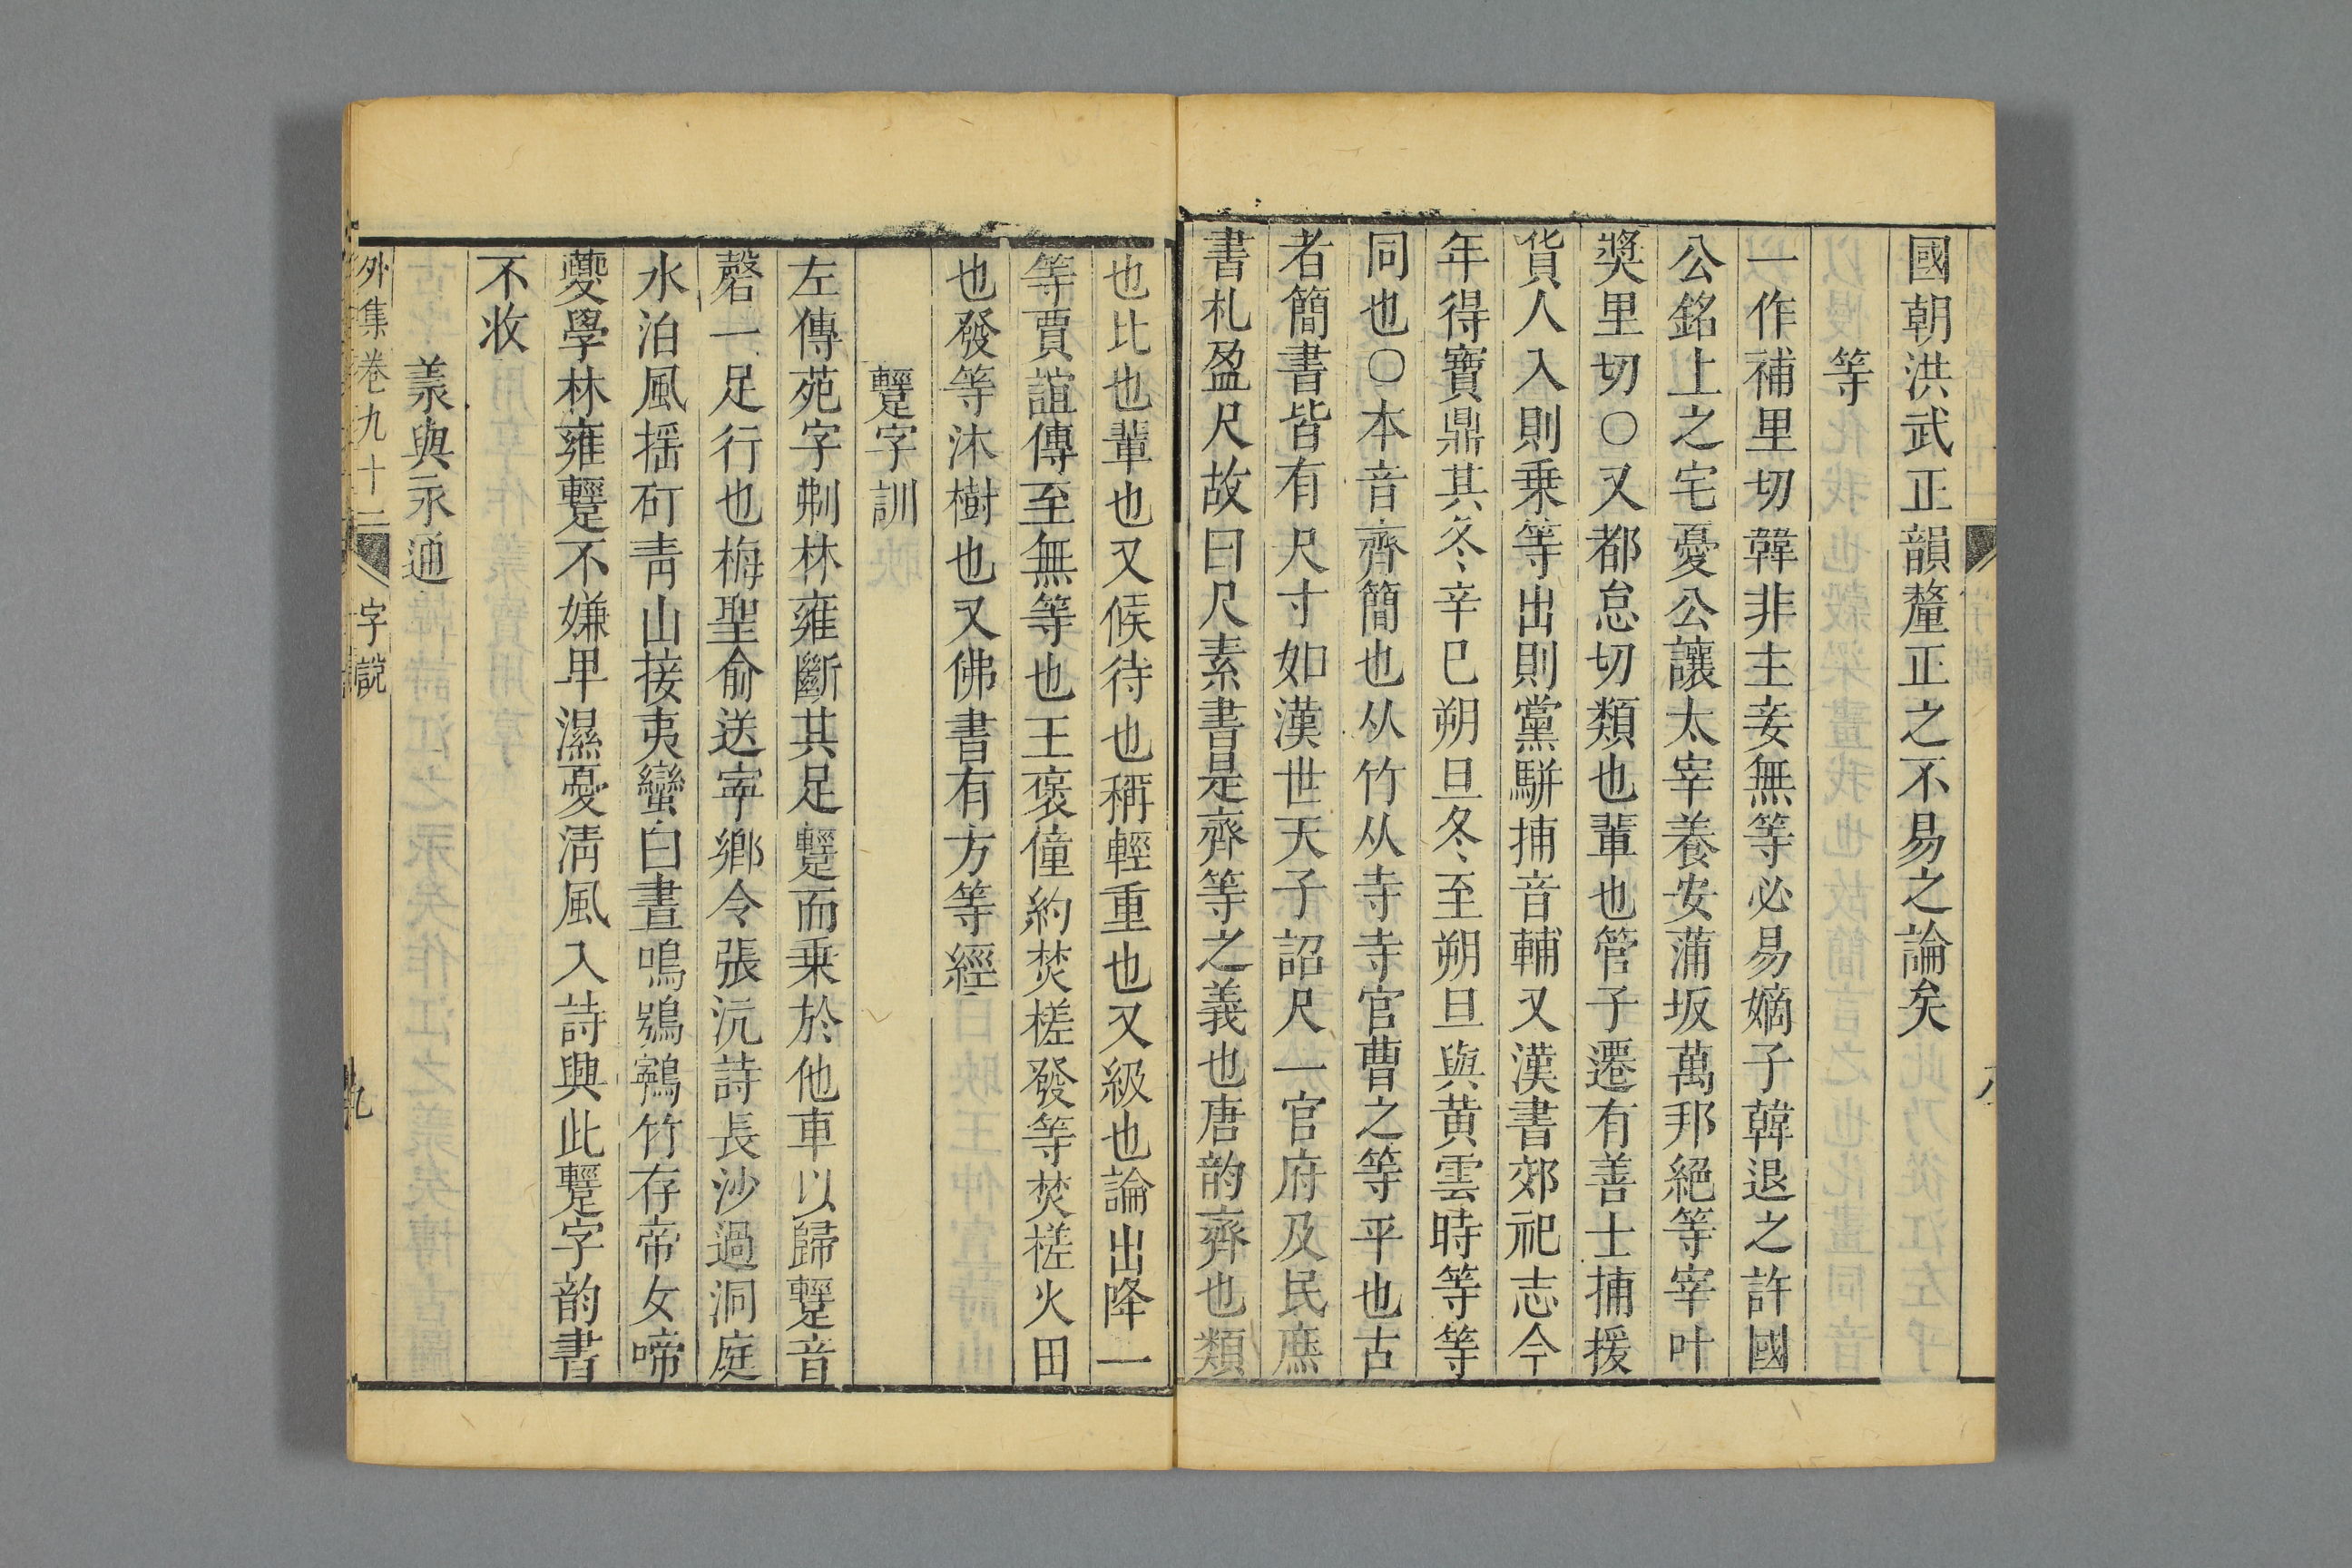 國朝洪武正韻釐正之不易之論矣
等
一作補里切韓非主妾無等必易嫡子韓退之許國
公銘上之宅憂公讓太宰養安蒲坂萬邦絕等宰叶
奬里切○又都怠切類也輩也管子遷有善士捕援
貨人入則乗等出則黨駢捕音輔又漢書郊祀志今
年得寶鼎其冬辛巳朔旦冬至朔旦與黄雲時等等
同也○本音齊簡也从竹从寺寺官曹之等平也古
者簡書皆有尺寸如漢世天子詔尺一官府及民庶
書札盈尺故曰尺素書是齊等之義也唐韵齊也類
也比也輩也又候待也稱輕重也又級也論出降一
等賈誼傳至無等也王褒僮約焚槎發等焚槎火田
也發等沐樹也又佛書有方等經
䠼字訓
左傳苑字刜林雍斷其足䠼而乗於他車以歸䠼音
磬一足行也梅聖俞送寧鄉令張沅詩長沙過洞庭
水泊風揺矴靑山接夷蠻白晝鳴鵶鶺竹存帝女啼
夔學林雍䠼不嫌卑濕憂清風入詩興此䠼字韵書
不收
羕與永通
外集卷九十二 字說 九